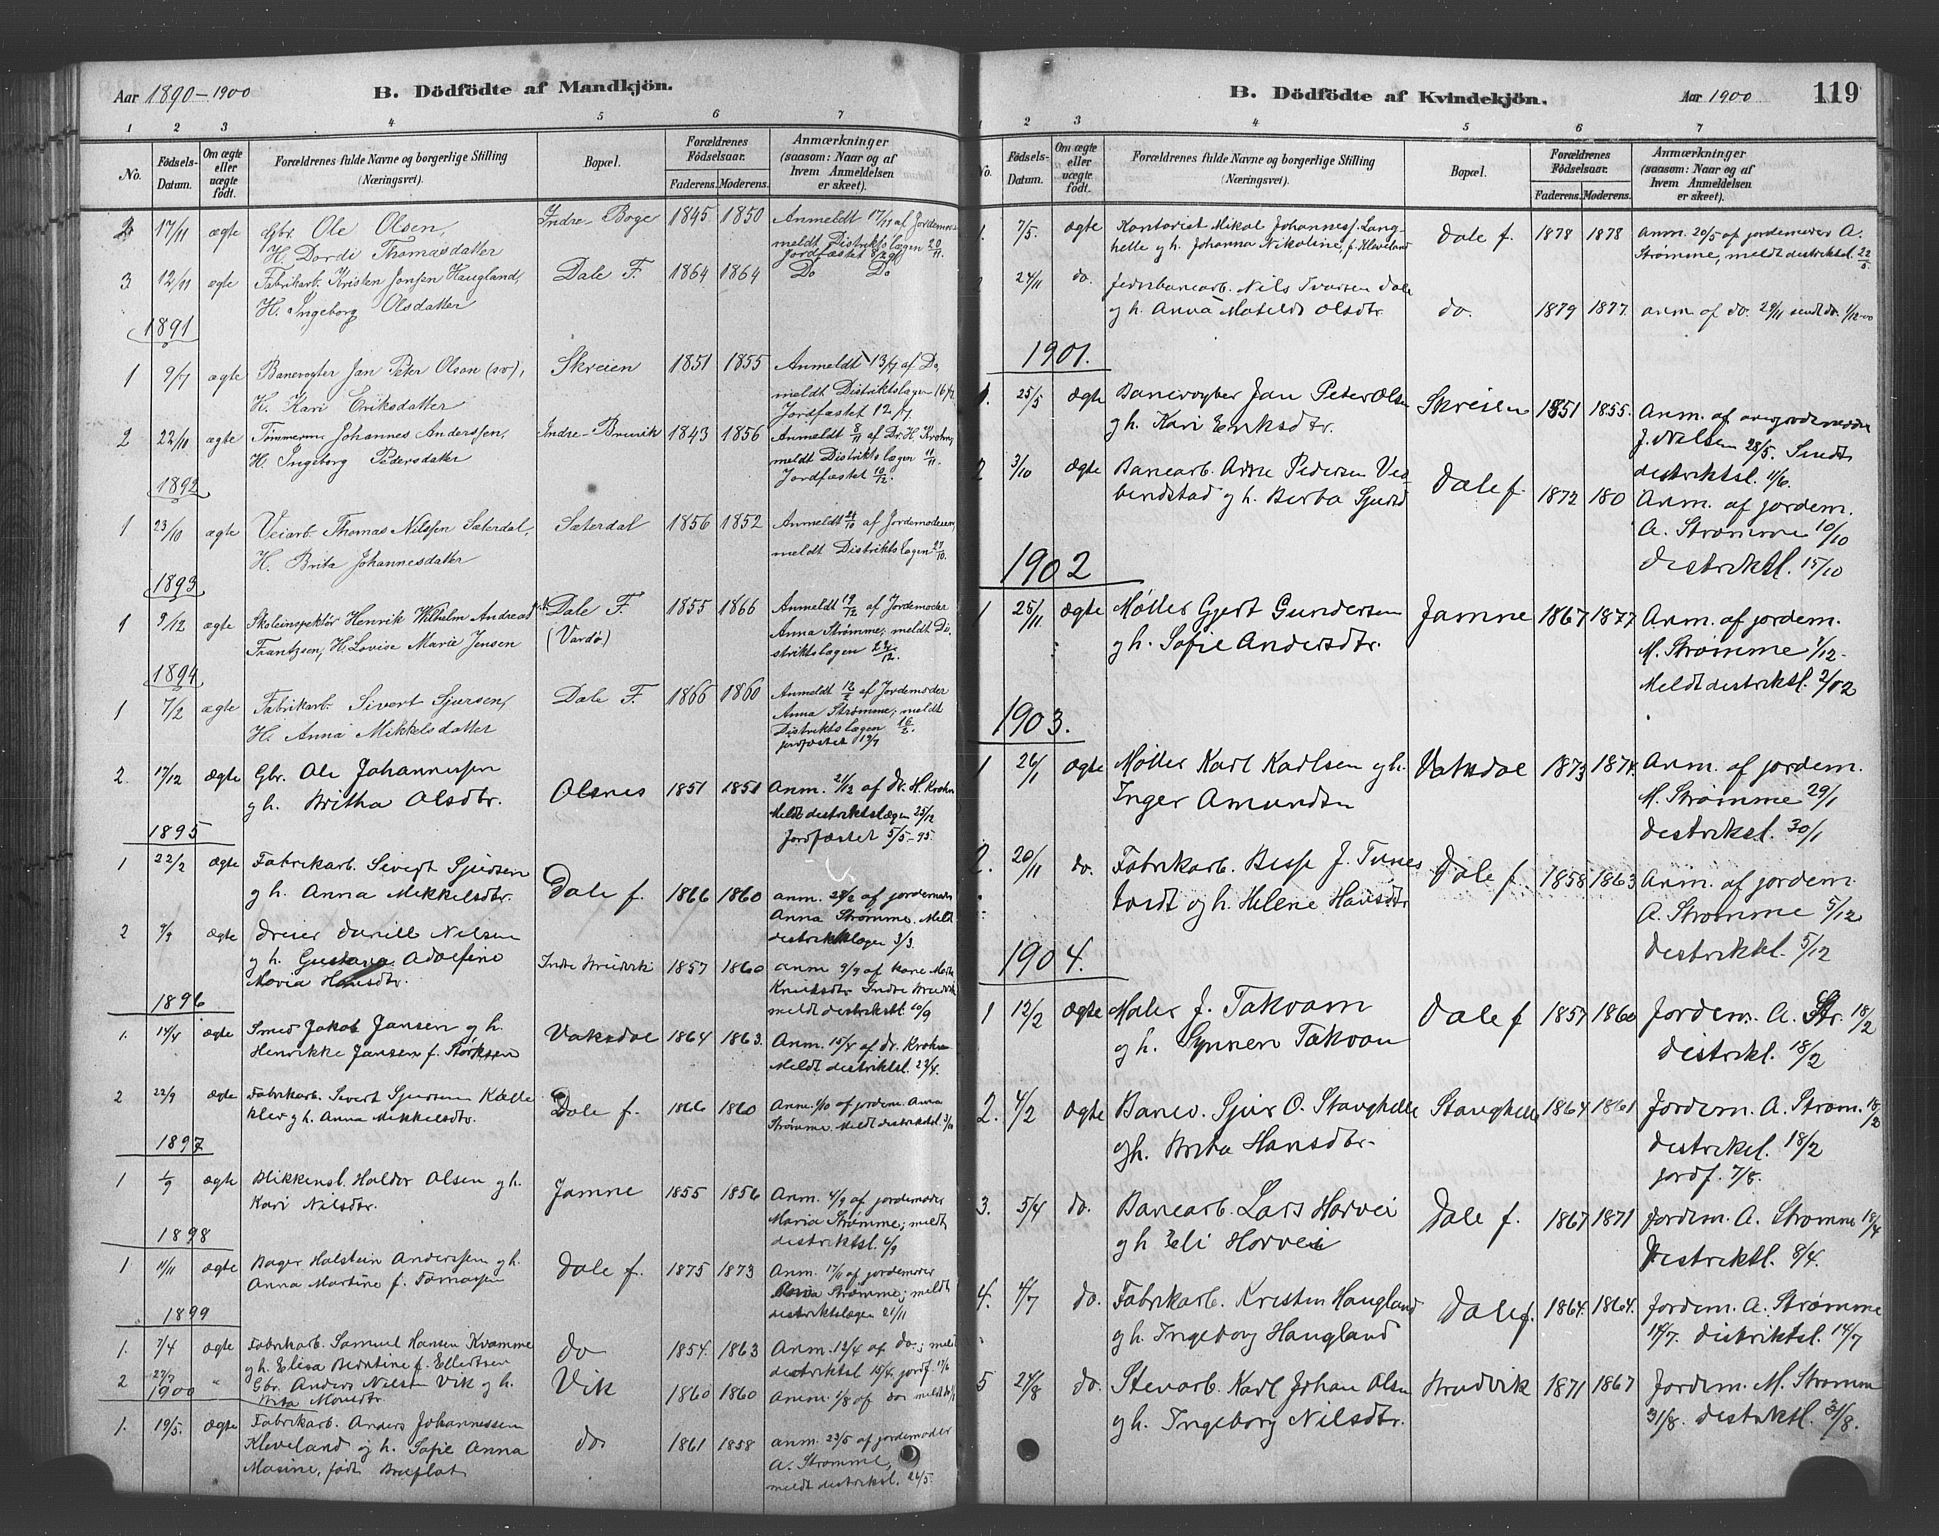 Aar 1890-1900
B. Dödfödte af Mandkjön.
1 2 3 4 5 6 7
No.
Födsels-Datum.
Om ægte eller uægte födt.
Forældrenes fulde Navne og borgerlige Stilling
(Næringsvei).
Bopæl.
Forældrenes Födselsaar.
Faderens. Moderens.
Anmærkninger
(saasom: Naar og af
hvem Anmeldelsen
er skeet).
2 17/11 ægte Gbr. Ole Olsen, Indre Boge 1845 1850 Anmeldt 17/11 af Jordemoder
H. Dorde Thomasdatter meldt Distriktslægen 20/11
Jordfæstet
3 12/11 ægte Fabrikarb. Kristen Jonsen Haugland, Dale F. 1864 1864 Do Do
H. Ingeborg Olsdatter
1891
1 9/7 ægte Banevogter Jan Peter Olson (sv), Skreien 1851 1855 Anmeldt 13/7 af Do,
H. Kari Eriksdatter meldt Distriktslægen 16/7
Jordfæstet 12/7
2 22/10 ægte Tømmerm. Johannes Anderssen, Indre Bruvik 1843 1856 Anmeldt 8/11 af Dr. H. Krohn,
H. Ingeborg Pedersdatter meldt Distriktslægen 11/11
Jordfæstet 10/12.
1892
1 23/10 ægte Veiarb. Thomas Nilssen Sæterdal, Sæterdal 1856 1852 Anmeldt 24/10 af Jordemoderen,
H. Brita Johannesdatter meldt Distriktslægen 27/10.
1893
1 9/12 ægte Skoleinspektør Henrik Wilhelm Andreas Dale F. 1855 1866 Anmeldt 19/12 af Jordemoder
Frantzsen, H. Lovise Marie Jensen (Vardø) Anna Strømme, meldt Di-
striktslægen 23/12.
1894
1 7/2 ægte Fabrikarb. Sivert Sjursen, Dale F. 1866 1860 Anmeldt 12/2 af Jordemoder
H. Anna Mikkelsdatter Anna Strømme, meldt
Distriktslægen 16/2
jordfæstet 19/7
2. 17/12 ægte Gbr. Ole Johannessen Olsnes 1851 1851 Anm. 21/12 af Dr. H. Krohn
og h. Britha Olsdtr. Meldt distriktslægen 25/12
Jordfæstet 5/5-95.
1895
1 22/2 ægte Fabrikarb. Sivert Sjursen
og h. Anna Mikkelsdtr. Dale f. 1866 1860 anm. 28/2 af jordemoder
Anna Strømme. Meldt
distriktslægen 3/3.
2 ægte Dreier Nilsen
og h. Gustava Adolfine Indre Bruvik 1857 1860 anm 9/9 af kone
Maria Hansdtr. Knutsdtr Indre Bruvik
meldt distriktsl. 10/9
1896
1. 14/4 ægte Smed Jakob Jansen og h. Vaksdal 1864 1863. Anm. 15/4 af dr. Krohn
Henrikke Jansen f. Meldt distriktsl. 22/4.
2 22/9 ægte Fabrikarb. Sivert Sjursen Dale f. 1866 1860 Anm. af jordem. Anna
og h. Anna Mikkelsdtr. Strømme. Meldt distriktsl.
1897
1 ægte Blikkensl. Haldor Olsen og h. Jamne 1855 1856 Anm. 4/9 af jordemoder
Kari Nilsdtr. Maria Strømme; meldt
distriktsl. 6/9
1898
1 11/11 ægte Bager Halstein Anderssen og h. Dale f. 1875 1873 Anm. 17/11 af jordemoder
Anna Martine f. Tomassen Anna Strømme; meldt
distriktslægen 21/11
1899
1. 7/4 ægte Fabrikarb. Samuel Hansen Kvamme do 1854. 1863 Anm. 12/4 af do; meldt
og h. Elisa Berntine f. Ellertsen distriktsl 15/4. jordf. 17/6
2 " Gbr. Anders Nilsen Vik og h. Vik 1860 1860 anm. 2/8 af do meldt
1900
1. 19/5. ægte Fabrikarb. Anders Johannessen do 1861 1858 anm. 23/5 af jordemoder
Kleveland og h. Sofie Anna A. Strømme,
Masine, født meldt distriktsl. 26/5.
B. Dödfödte af Kvindekjön.
Aar 1900 119
1 2 3 4 5 6 7
No.
Födsels-Datum.
Om ægte eller uægte födt.
Forældrenes fulde Navne og borgerlige Stilling
(Næringsvei).
Bopæl.
Forældrenes Födselsaar.
Faderens. Moderens.
Anmærkninger
(saasom: Naar og af
hvem Anmeldelsen
er skeet).
1. 7/5. ægte Kontorist Mikal Johannes f. Lang- Dale f. 1878 1878 anm. 20/5 af jordemoder A.
helle og h. Johanna Nikoline, f. Kleveland Strømme, meldt distriktsl. 22/5.
24/11 do. Jernbanearb. Nils Ivarsen Dale
og h. Anna Matilde Olsdtr. do. 1879 1877. anm. af do. 29/11 sendt dr. 1/12-00
1901.
1. 25/5 ægte Banevogter Jan Peter Olsen Skreien 1851 1855. Anm. af jordemoder
og h. Kari Eriksdtr. J. Nilsen 28/5. Sendt
distriktsl. 1/6.
2 3/10 ægte Banearb. Arne Pedersen Dale f. 1872 180 Anm. af jordem.
og h. Berta A. Strømme 10/10
distriktsl. 15/10
1902
1 25/11 ægte Møller Gjert Gundersen Jamne 1867 1877 Anm. af jordem.
og h. Sofie Andersdtr. M. Strømme 1/12.
Meldt distriktsl. 2/12
1903.
1 26/1 ægte Møller Karl Karlsen og h. Vaksdal 1873 1874. Anm. af jordem.
Inger Amundsen M. Strømme 29/1
distriktsl. 30/1
2. 20/11 do. Fabrikarb. Dale f. 1858 1863 Anm. af jordem.
og h. Helene Hansdtr A. Strømme 5/12
distriktsl. 5/12
1904.
1 12/2 ægte Maler J. Takvam Dale f 1857 1860 Jordem. A. Str. 18/2
og h. Synneve Takvam distriktsl. 18/2
2. 4/2 ægte Banev. Sjur O. Stanghelle Stanghelle 1864 1861 Jordem. A. Strøm. 18/2
og h. Brita Hansdtr. distriktsl. 18/2
jordf. 7/8.
3. 5/4 do. Banearb. Lars Horvei Dale f. 1867 1871 Jordem. A. Strømme
og h Eli Horvei Distriktsl. 8/4.
4. 4/7 do. Fabrikarb. Kristen Haugland Dale f. 1864. 1864. Jordem. A. Strømme
og h. Ingeborg Haugland 14/7. distriktsl. 14/7
5 24/8 do. Stenarb. Karl Johan Olsen Bruvik 1871 1867 Jordem. M. Strømme
og h. Ingeborg Nilsdtr. 31/8. distriktsl. 31/8.